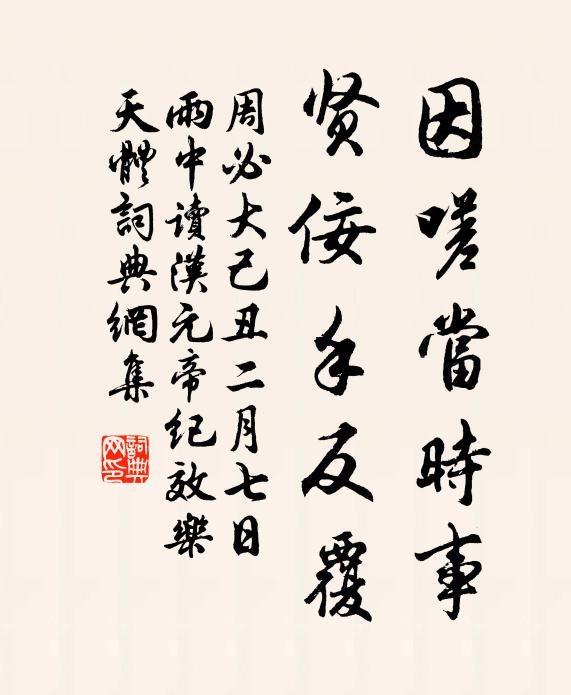 因嗟當時事
贤佞手反覆
周必大己丑二月七日
雨中讀漢元帝纪效樂
天體詞典網集
詞典网印